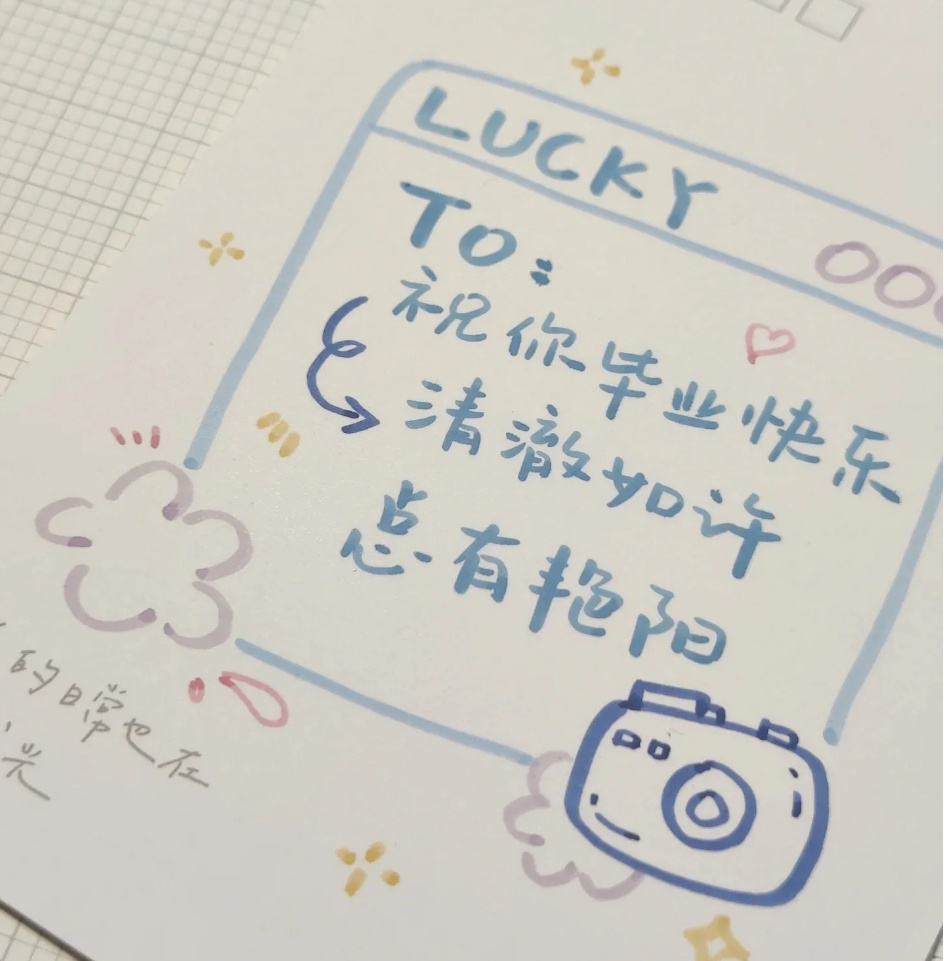 LUCKY
TO:
祝你毕业快乐
清澈如许
总有艳阳
的日常也在
光